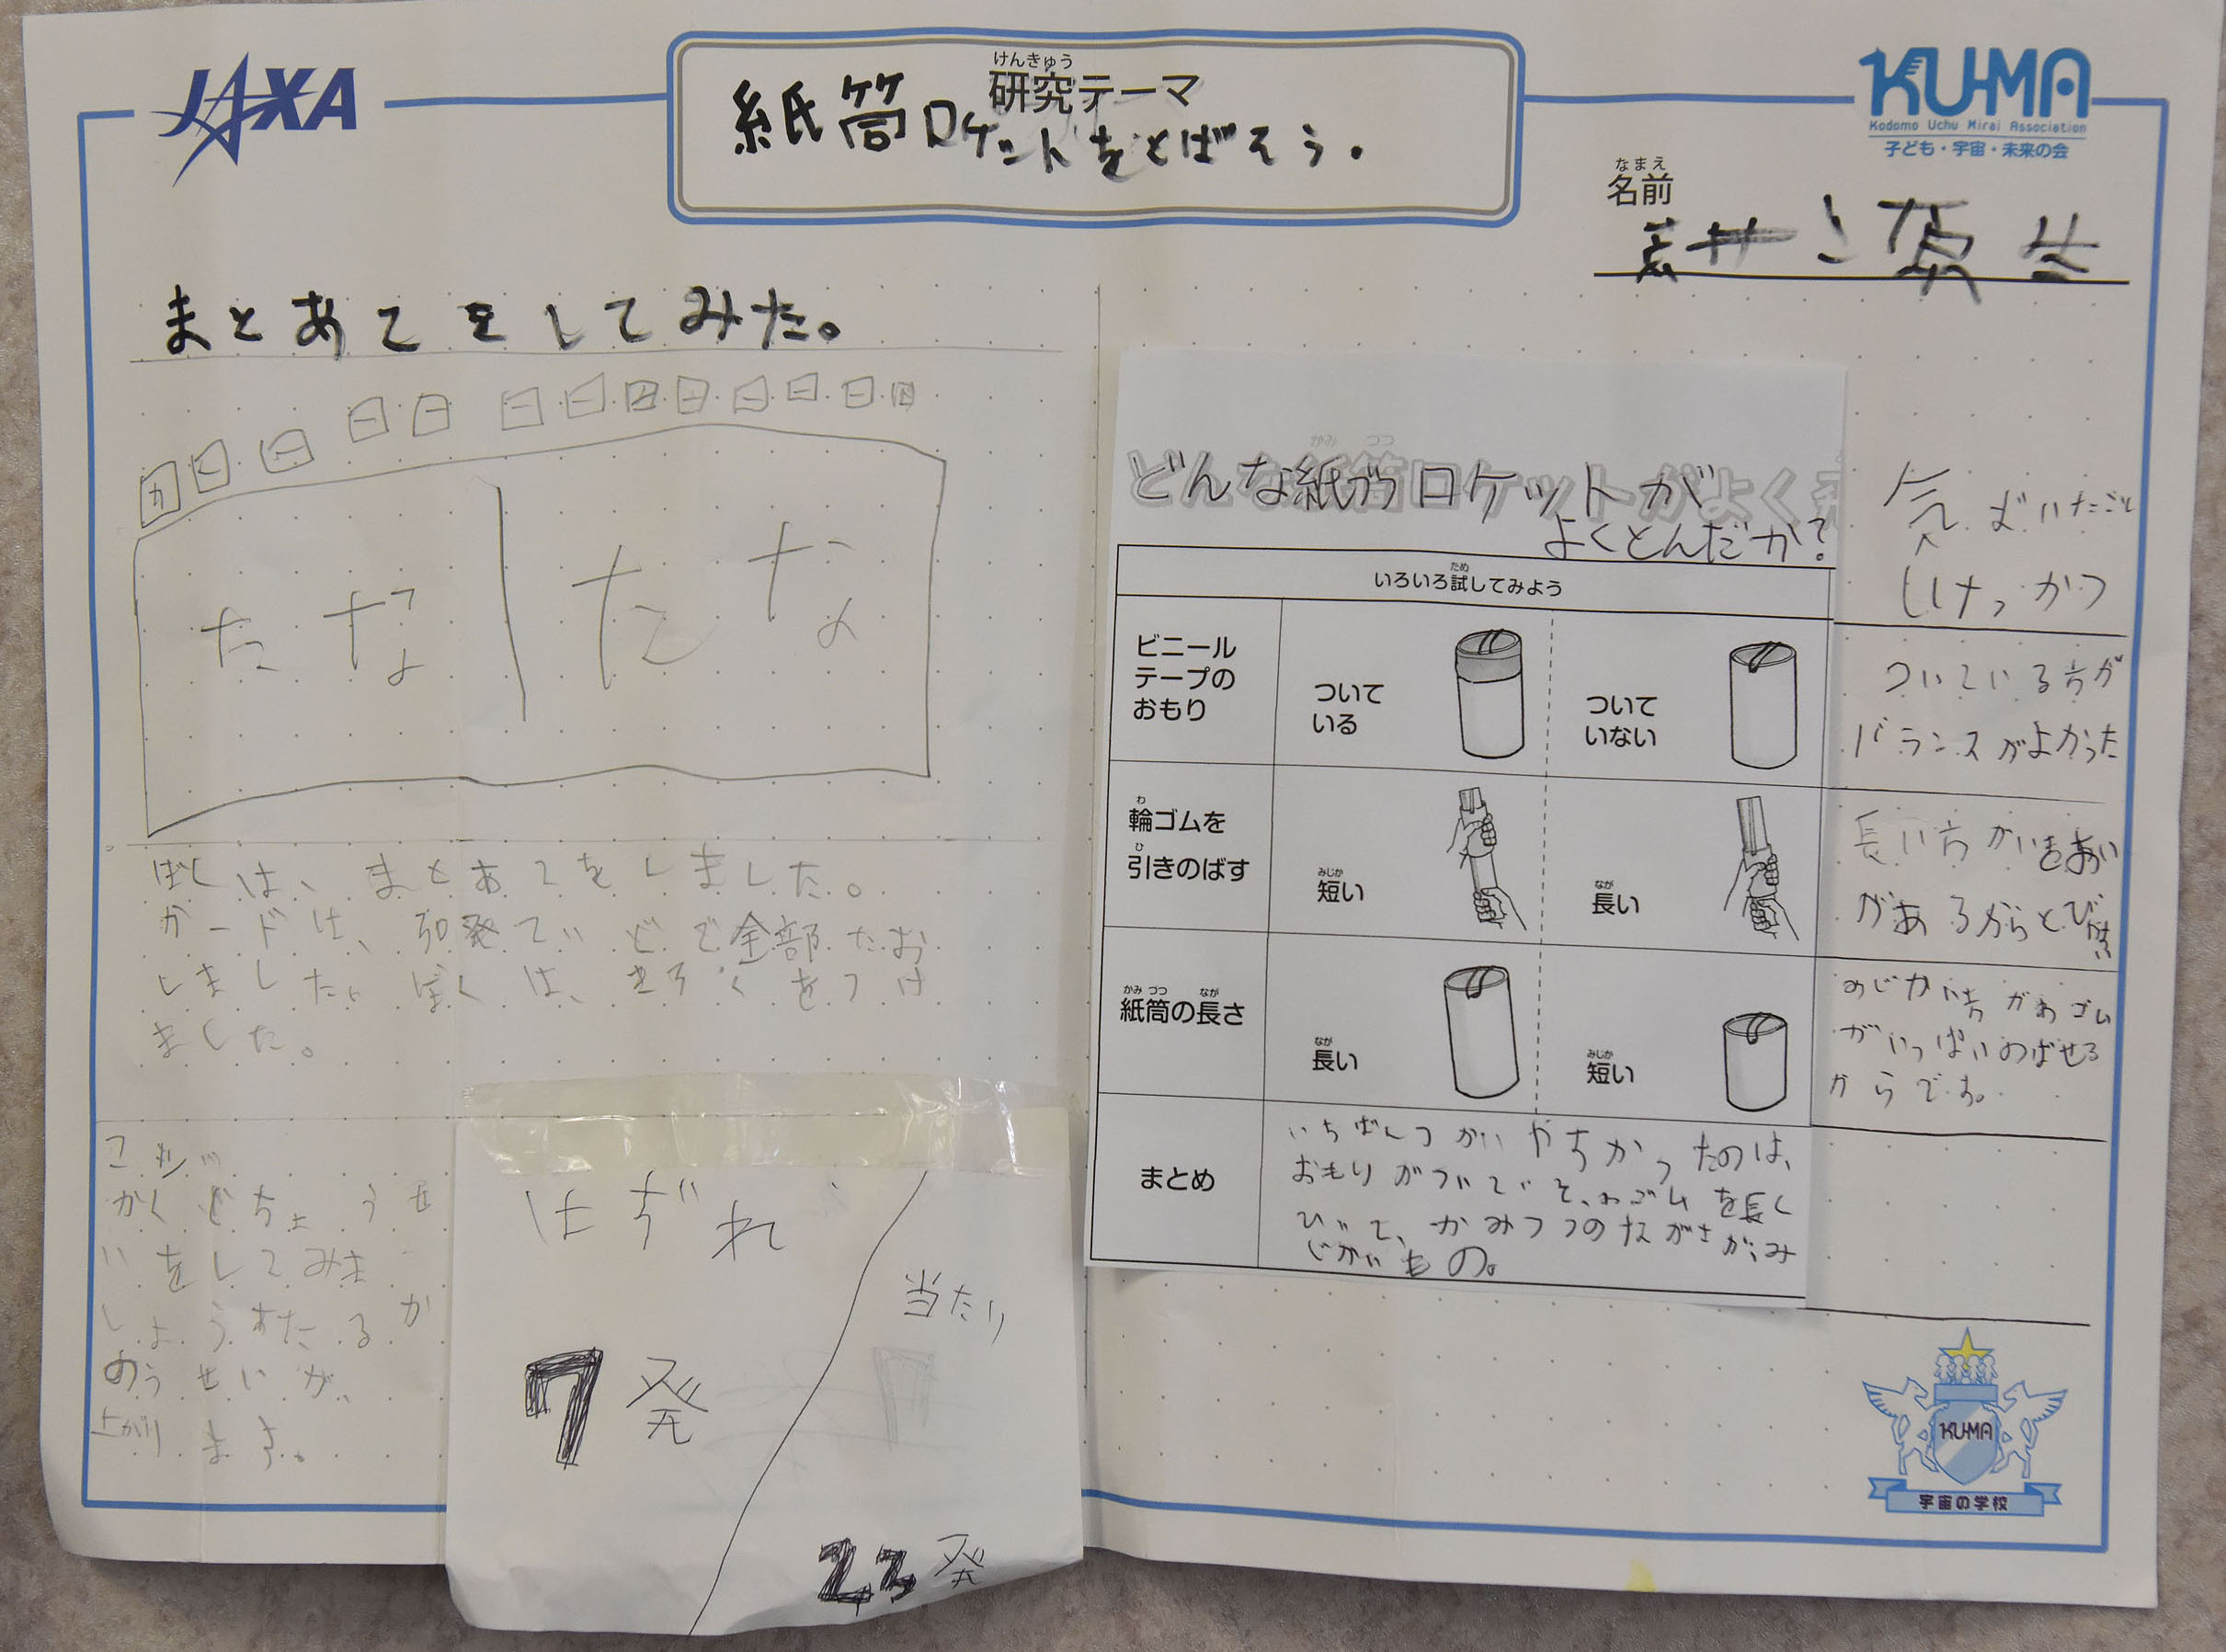 JAXA
けんきゅう
研究テーマ
紙筒ロケットをとばそう。
KU-MA
Kodomo Uchu Mirai Association
子ども・宇宙・未来の会
なまえ
名前
まとあてをしてみた。
カ
たな
たな
ぼくは、まとあてをしました。
カードは、30発ていどで全部たお
しました。ぼくは、きろくをつけ
ました。
コツ
かくどちょうせ
いをしてみま
しょうあたるか
のうせいが、
上がります。
はずれ
7発
当たり
23発
かみ つつ
どんな紙筒ロケットが
よくとんだか?
ため
いろいろ試してみよう
ビニール
テープの
おもり
ついて
いる
ついて
いない
わ
輪ゴムを
ひ
引きのばす
みじか
短い
なが
長い
かみ づつ なが
紙筒の長さ
なが
長い
みじか
短い
まとめ
いちばん
おもりがついてて、わゴムを長く
ひいて、かみつつのながさがみ
じかいもの。
気づいたこと
けっかつ
ついている方が
バランスがよかった
長い方がいきおい
があるからとび
みじかい方がわゴム
がいっぱいのばせる
からです。
KU-MA
宇宙の学校